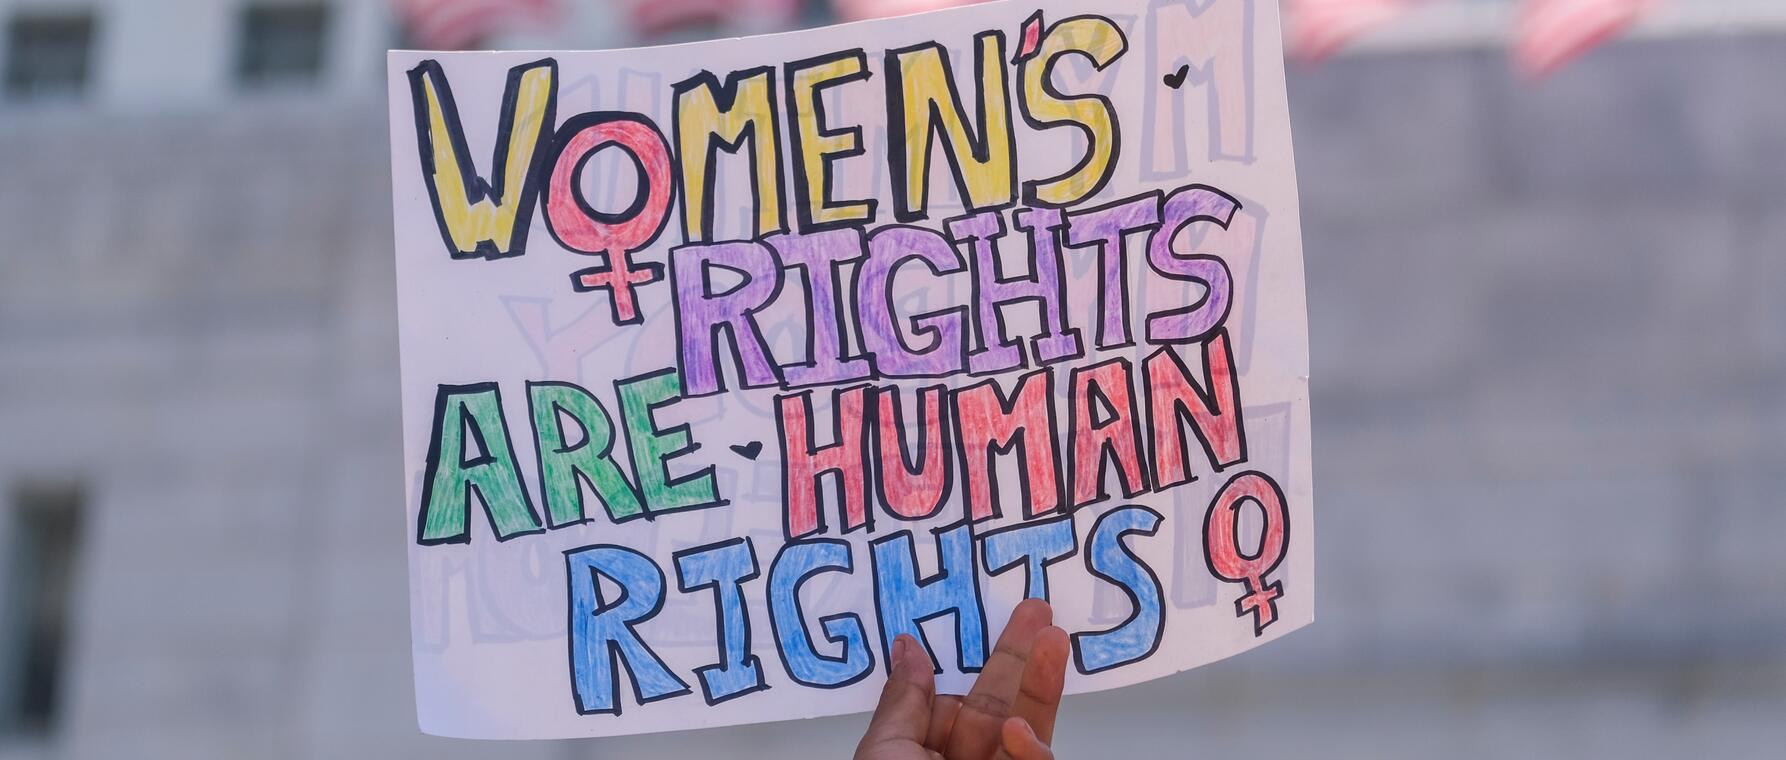 WOMEN'S
RIGHTS
ARE HUMAN
RIGHTS